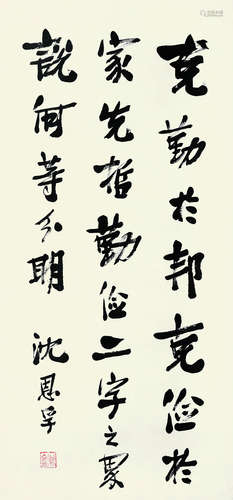 克勤於邦克儉於
家先哲勤儉二字之累
說何等分明
沈恩孚